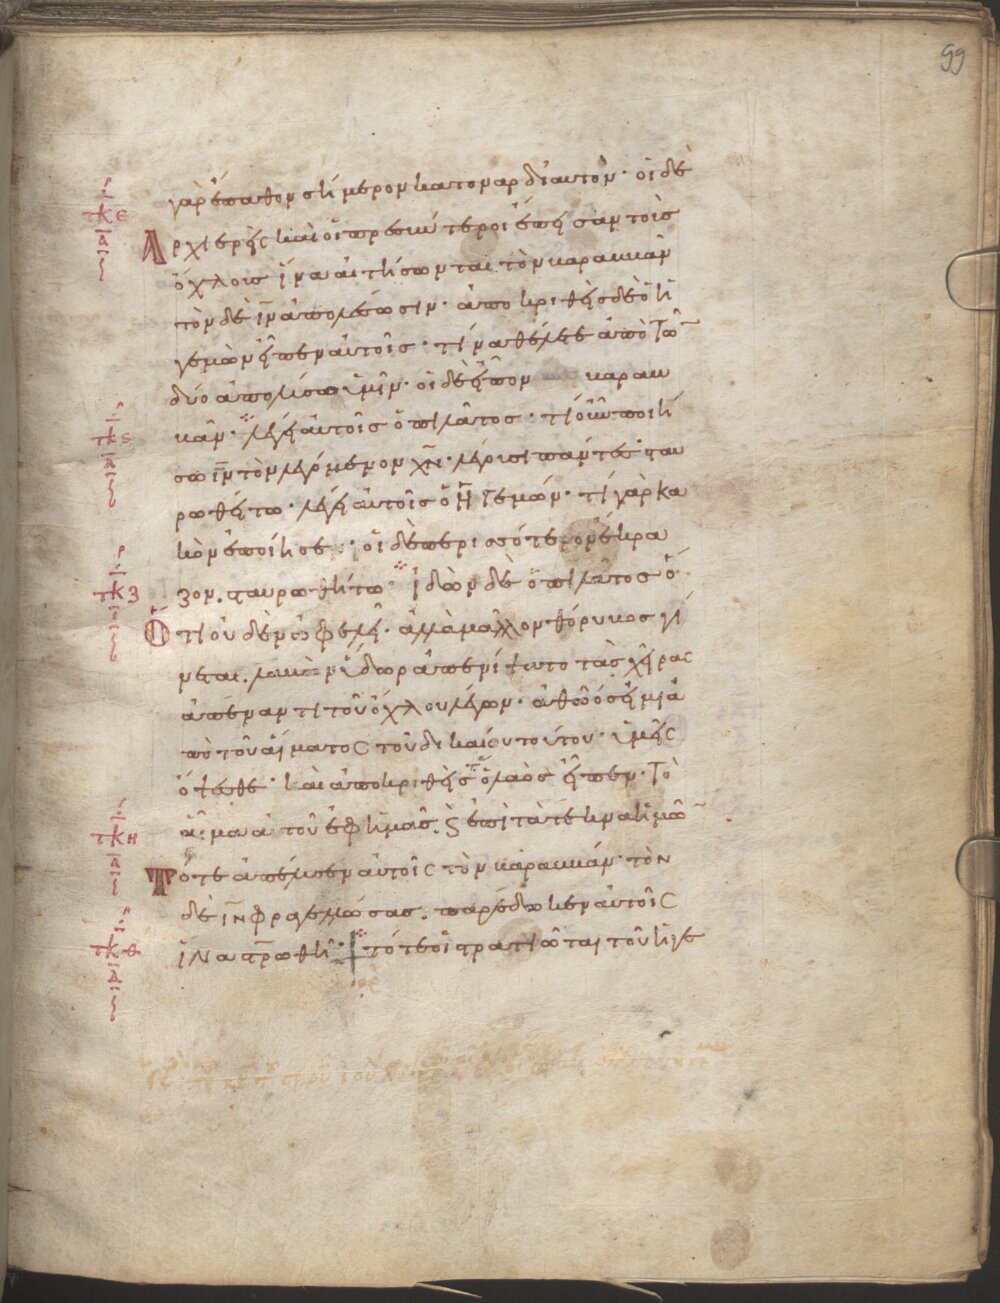 99
γὰρ ἔπαθον σήμερον κατοναρ δι αυτόν· οἱ δὲ
ΤΚΕ
Αρχιερεῖς καὶ οἱ πρεσβύτεροι ἔπεισαν τοὺς
Α
ὄχλους ἵνα αἰτήσωνται τὸν βαραββὰν
τὸν δὲ ιν ἀπολέσωσιν· ἀποκριθεὶς δὲ ὁ ἡ
γεμὼν εἶπεν αυτοῖς· τίνα θέλετε ἀπὸ τῶ
δύο ἀπολύσω ὑμῖν· οἱ δὲ εἶπον βαραβ
ΤΚϚ
βᾶν· λέγει αυτοῖς ὁ πιλᾶτος· τί οὖν ποιή
Α
σω ιν τὸν λεγόμενον χν· λέγουσι πάντες· σταυ
ρωθήτω· λέγει αυτοῖς ὁ Ηγεμών· τί γὰρ κα
κὸν ἐποίησε· οἱ δὲ περισσότερον ἔκρα
ΤΚΖ
ζον. σταυρωθήτω· ἰδὼν δὲ ὁ πιλᾶτος ὁ
Οτι οὐδὲν ὠφελεῖ· ἀλλὰ μαλλον θόρυβος γί
νεται. λαβὼν ὕδωρ ἀπενίψατο τὰς χεῖρας
ἀπέναντι τοῦ ὄχλου λέγων· ἀθῶός εἰμι ἀ
πὸ τοῦ αἵματος τοῦ δικαίου τούτου· ὑμεῖς
ὄψεσθε· καὶ ἀποκριθεὶς ὁ λαὸς εἶπεν· Τὸ
αἷμα αυτοῦ ἐφ ἡμᾶς. ϗ ἐπὶ τὰ τέκνα ἡμῶ
ΤΚΗ
Τότε ἀπέλυσεν αυτοῖς τὸν βαραββάν· τὸν
Α
δὲ ιν φραγελλώσας. παρέδωκεν αυτοῖς
ΤΚΘ
ἵνα στρωθῆ· τότε οἱ στρατιῶται τοῦ ἡγε
Α